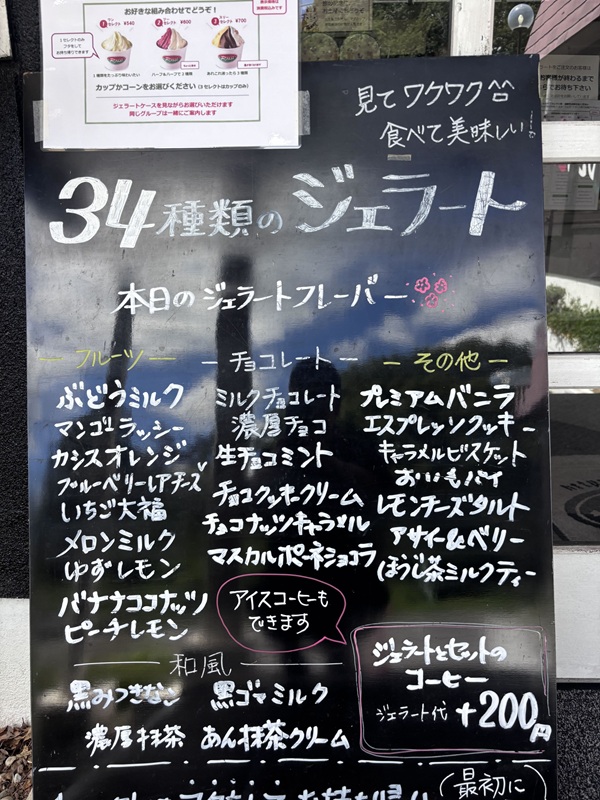 お好きな組み合わせでどうぞ！
¥540
¥600
¥700
1種類をたっぷり味わいたい
ハーフ&ハーフで2種類
あれこれ迷ったら3種類
カップかコーンをお選びください（3セレクトはカップのみ）
ジェラートケースを見ながらお選びいただけます
同じグループは一緒にご案内します
見てワクワク
食べて美味しい
34種類のジェラート
本日のジェラートフレーバー
フルーツ
ぶどうミルク
マンゴーラッシー
カシスオレンジ
ブルーベリーレアチーズ
いちご大福
メロンミルク
ゆずレモン
バナナココナッツ
ピーチレモン
チョコレート
ミルクチョコレート
濃厚チョコ
生チョコミント
チョコクッキークリーム
チョコナッツキャラメル
マスカルポーネショコラ
その他
プレミアムバニラ
エスプレッソクッキー
キャラメルビスケット
おいもパイ
レモンチーズタルト
アサイー&ベリー
ほうじ茶ミルクティー
アイスコーヒーも
できます
和風
黒みつきなこ
黒ゴマミルク
濃厚抹茶
あん抹茶クリーム
ジェラートとセットの
コーヒー
ジェラート代 +200円
最初に